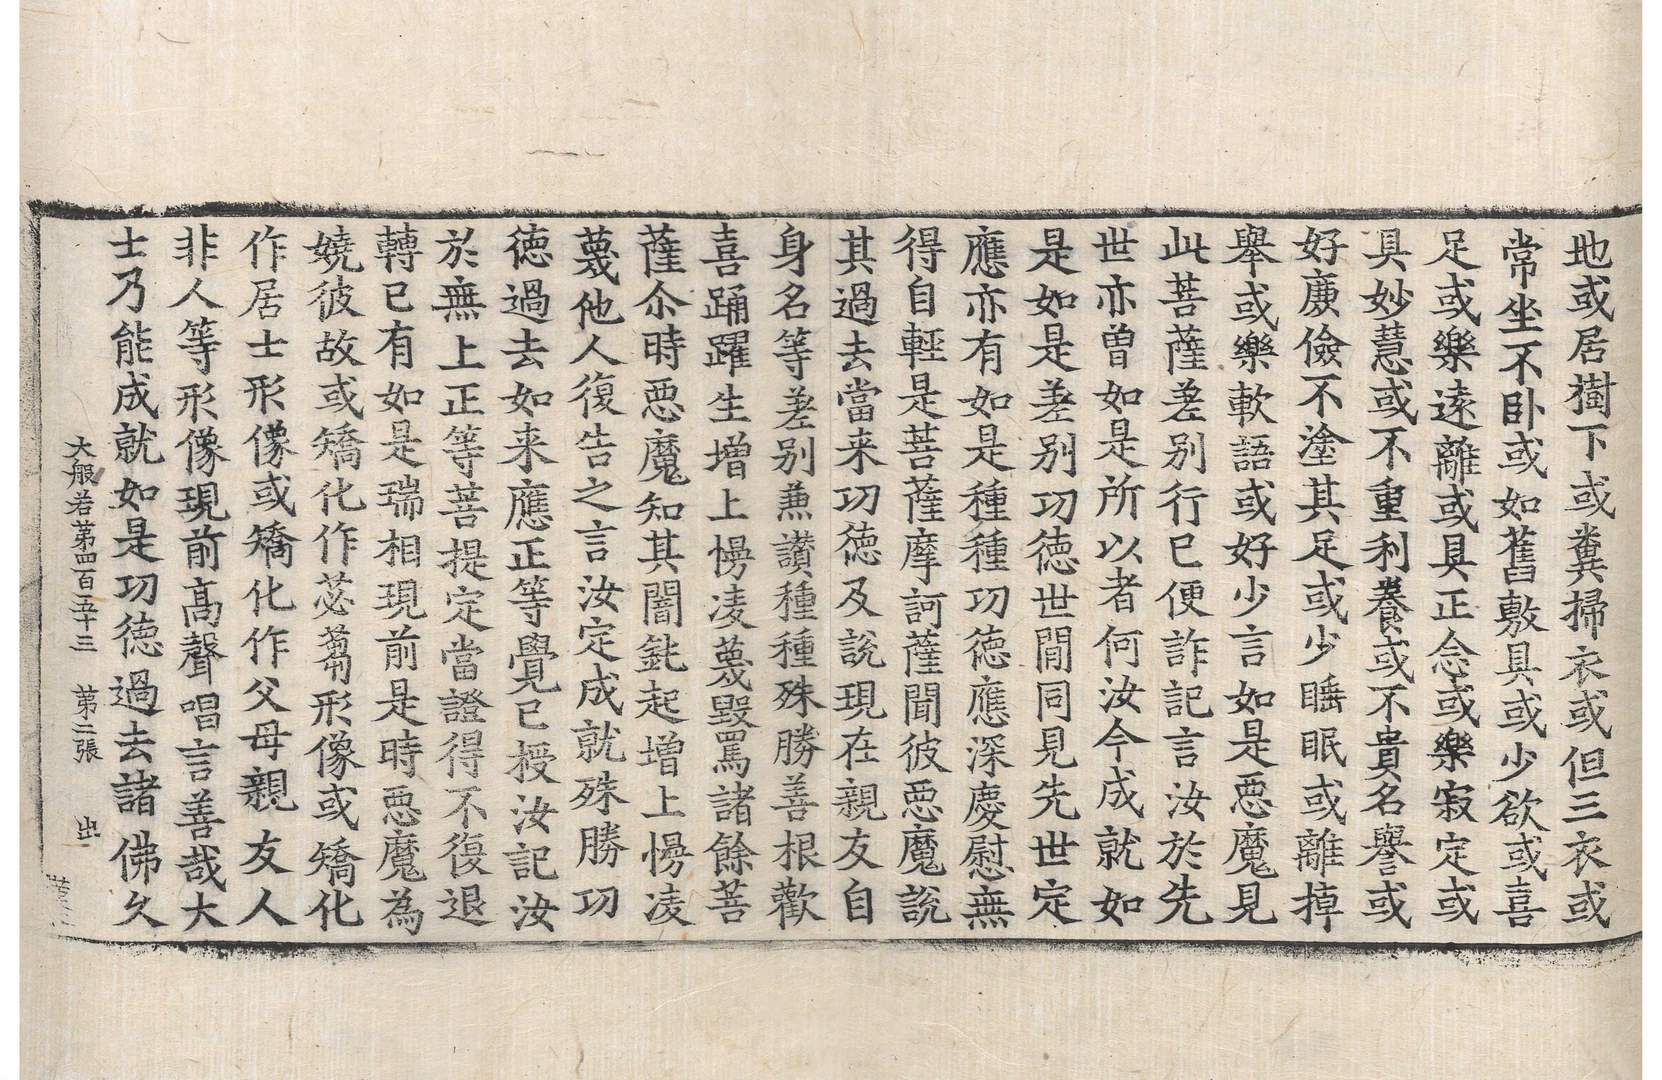 地或居樹下或糞掃衣或但三衣或
常坐不卧或如舊敷具或少欲或喜
足或樂遠離或具正念或樂寂定或
具妙慧或不重利養或不貴名譽或
好廉儉不塗其足或少睡眠或離掉
舉或樂軟語或好少言如是惡魔見
此菩薩差別行已便詐記言汝於先
世亦曾如是所以者何汝今成就如
是如是差別功德世閒同見先世定
應亦有如是種種功德應深慶慰無
得自輕是菩薩摩訶薩聞彼惡魔說
其過去當来功德及說現在親友自
身名等差别兼讃種種殊勝善根歡
喜踊躍生增上慢凌蔑毀罵諸餘菩
薩尒時惡魔知其闇鈍起增上慢凌
蔑他人復告之言汝定成就殊勝功
德過去如来應正等覺已授汝記汝
於無上正等菩提定當證得不復退
轉已有如是瑞相現前是時惡魔為
嬈彼故或矯化作苾蒭形像或矯化
作居士形像或矯化作父母親友人
非人等形像現前高聲唱言善哉大
士乃能成就如是功德過去諸佛久
大般若第四百五十三 第二張 出